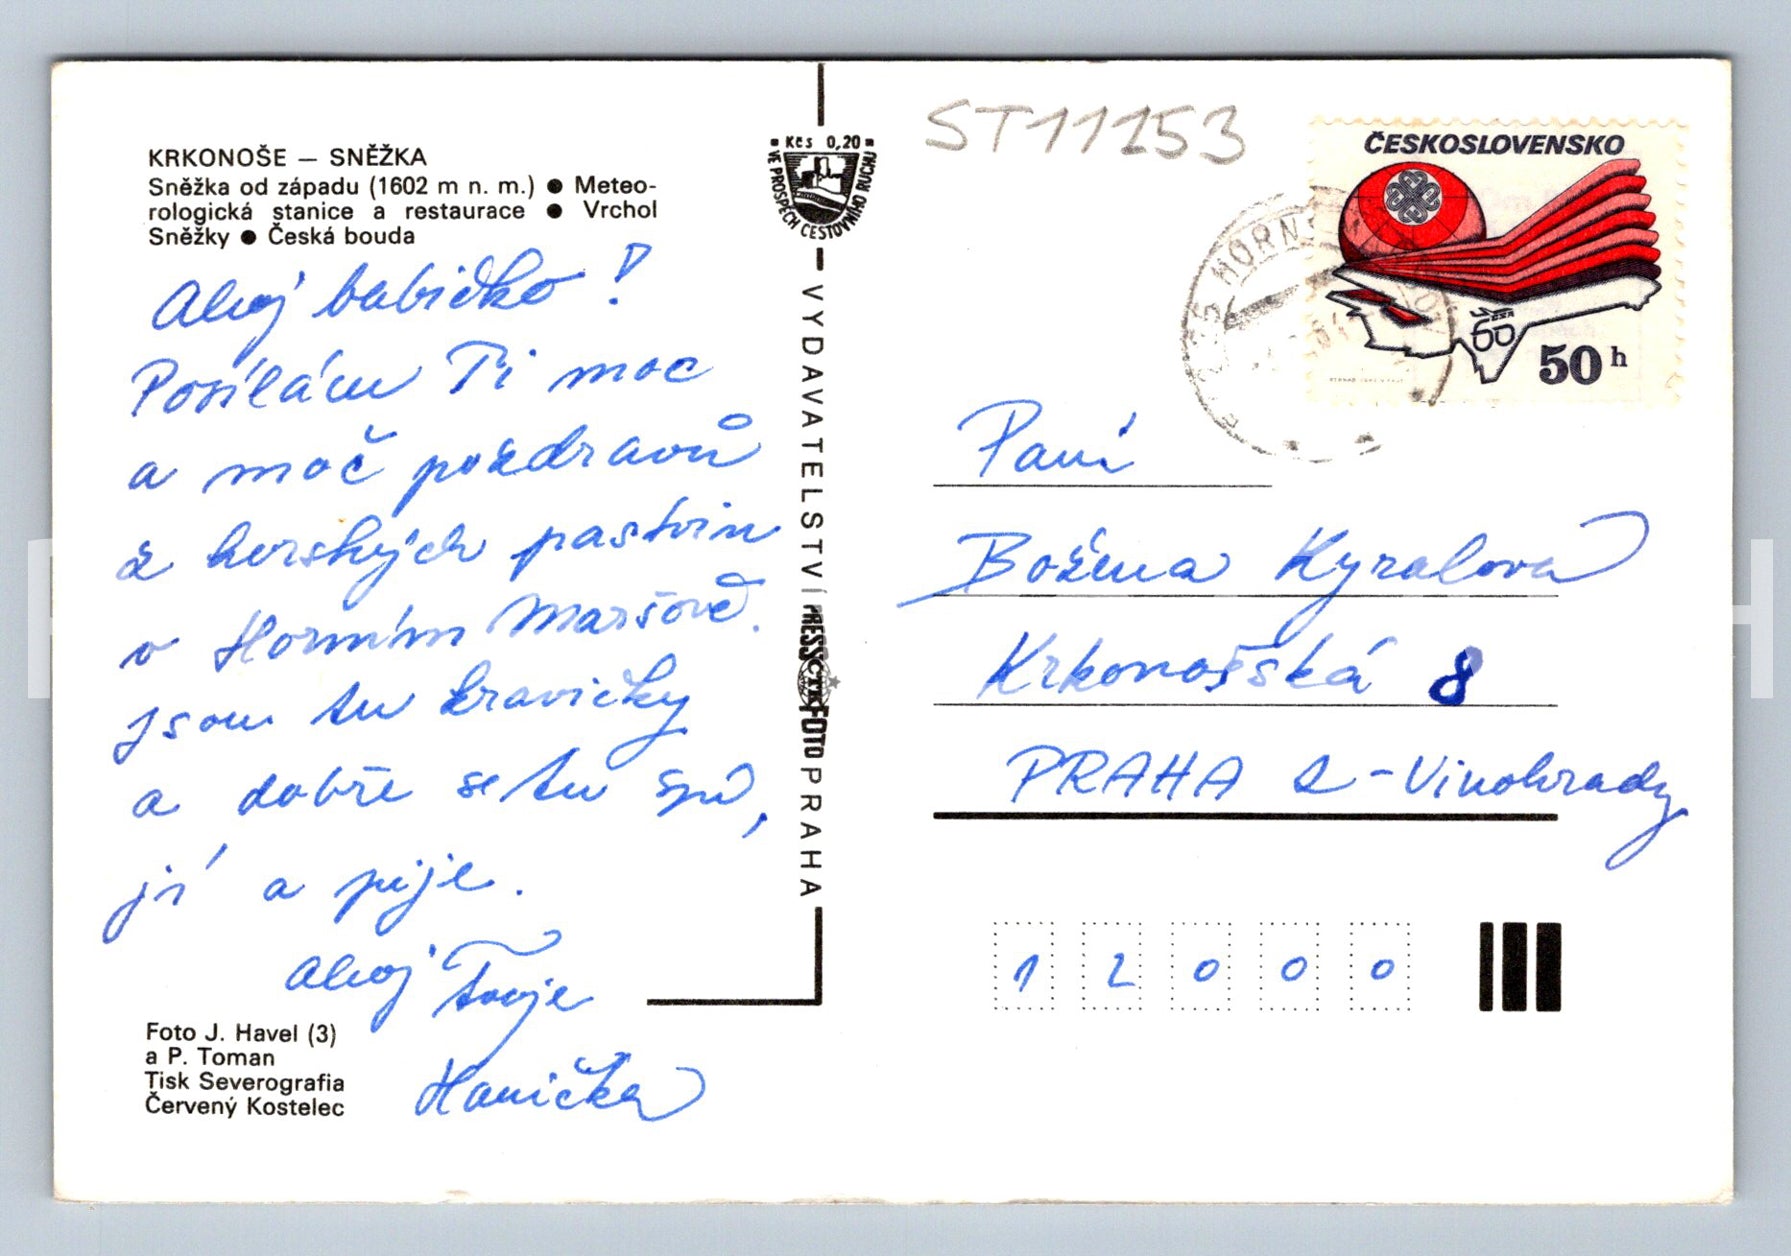 KRKONOŠE – SNĚŽKA
Sněžka od západu (1602 m n. m.) ● Meteo-
rologická stanice a restaurace ● Vrchol
Sněžky ● Česká bouda
Ahoj babičko!
Posílám Ti moc
a moč pozdravů
z horských pastvin
v Horním Maršově.
jsou tu kravičky
a dobře se tu spí,
jí a pije.
Ahoj Tvoje
Hanička
Foto J. Havel (3)
a P. Toman
Tisk Severografia
Červený Kostelec
Kčs 0,20
VE PROSPĚCH CESTOVNÍHO RUCHU
VYDAVATELSTVÍ PRESSFOTO PRAHA
ČTK
ST11153
ČESKOSLOVENSKO
60
ČSA
50 h
HORNÍ
Paní
Božena Kyralova
Krkonošská 8
PRAHA 2-Vinohrady
12000